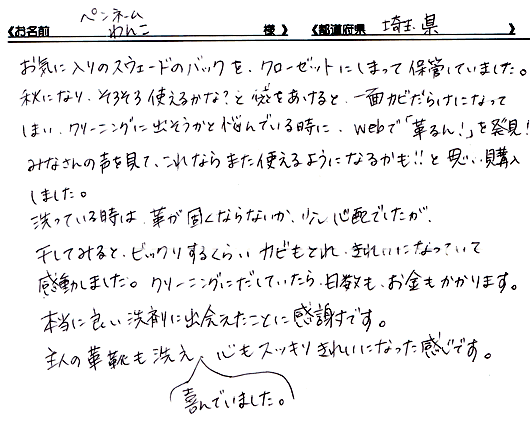 ペンネーム
《お名前 わんこ 様》 《都道府県 埼玉県 》
お気に入りのスウェードのバックを、クローゼットにしまって保管していました。
秋になり、そろそろ使えるかな?と袋をあけると、一面カビだらけになって
しまい、クリーニングに出そうかと悩んでいる時に、webで「革るん!」を発見!
みなさんの声を見て、これならまた使えるようになるかも!!と思い、購入
しました。
洗っている時は、革が固くならないか、少し心配でしたが、
干してみると、ビックリするくらい カビもとれ、きれいになっていて
感動しました。クリーニングにだしていたら、日数も、お金もかかります。
本当に良い洗剤に出会えたことに感謝です。
主人の革靴も洗え、心もスッキリきれいになった感じです。
喜んでいました。